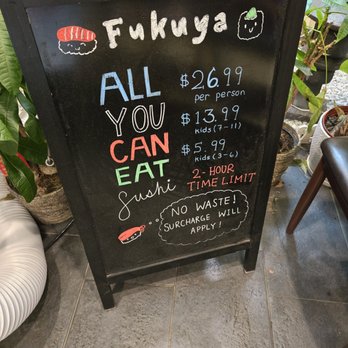 Fukuya
ALL
YOU
CAN
EAT
Sushi
$26.99
per person
$13.99
kids (7-11)
$5.99
kids (3-6)
2-HOUR
TIME LIMIT
NO WASTE!
SURCHARGE WILL
APPLY!